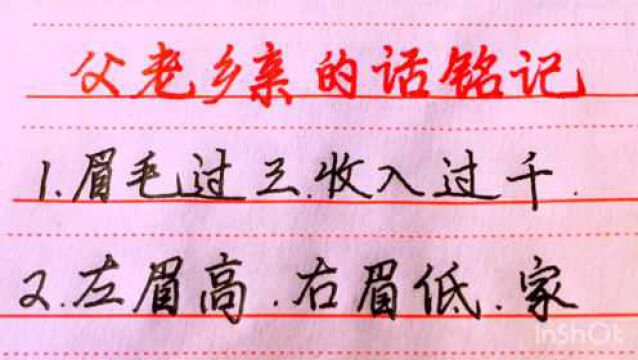 父老乡亲的话铭记
1.眉毛过三.收入过千.
2.左眉高.右眉低.家
InShOt